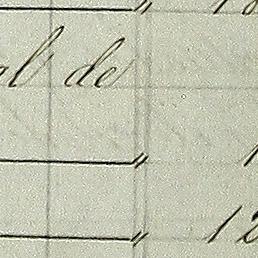 " 18
al de
" 1
" 12